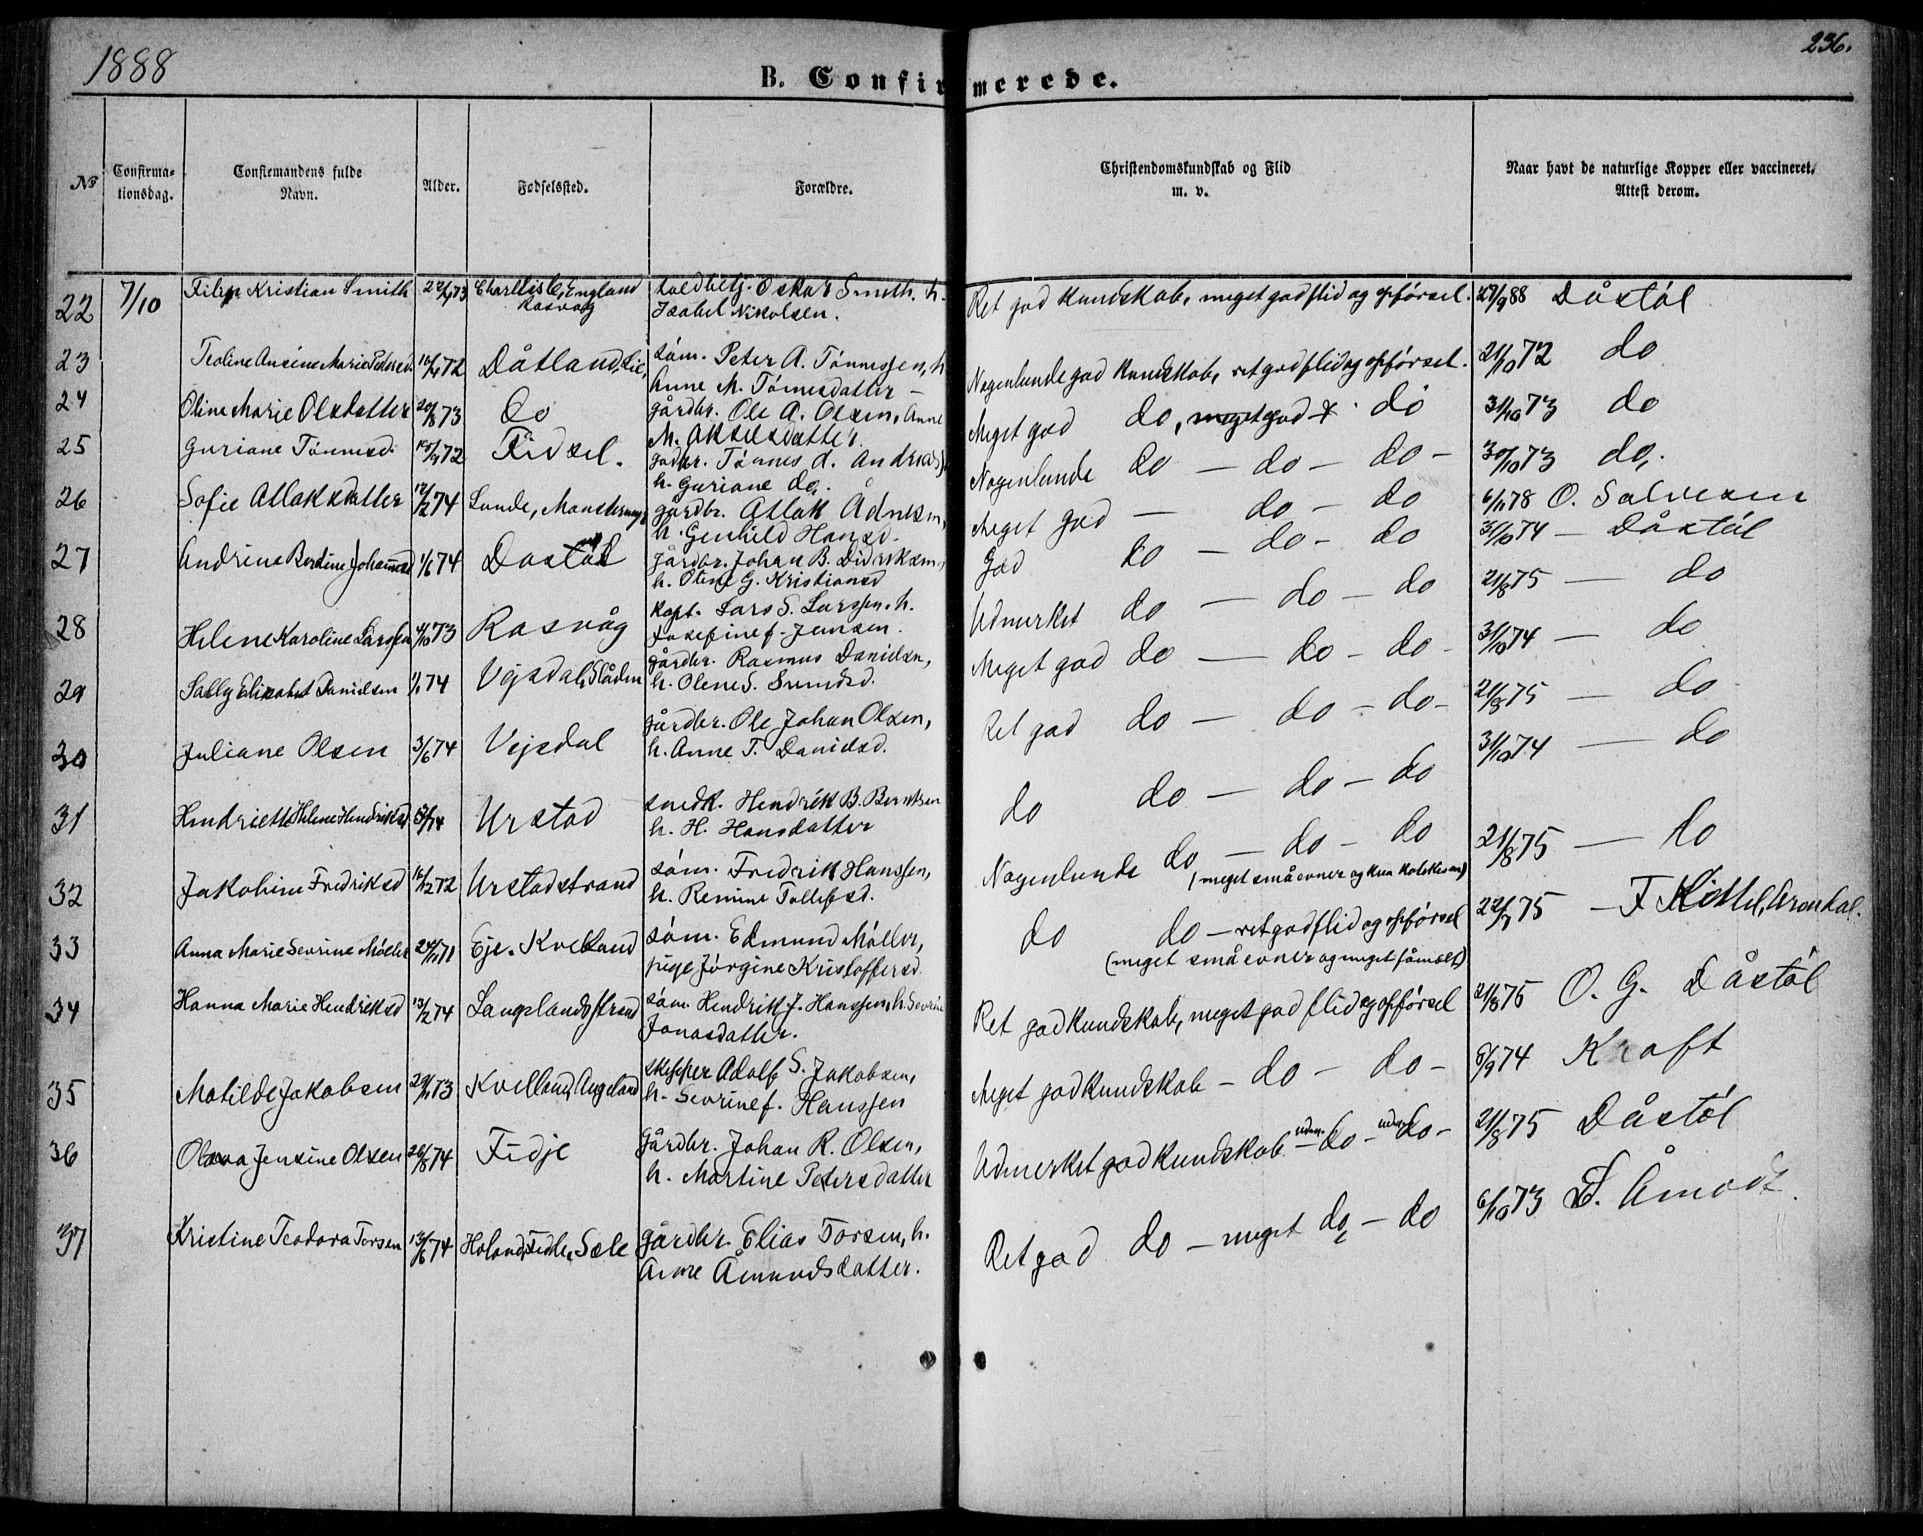 1888
236.
B. Confirmerede.
№ Confirma-tionsdag. Confirmandens fulde Navn. Alder. Fødselssted. Forældre. Christendomskundskab og Flid m. v. Naar havt de naturlige Kopper eller vaccineret. Attest derom.
22 7/10 Filip Kristian Smith 73 England Oskar Smith, h. Ret god kundskab, meget god flid og opførsel. 27/9 88 Dåstøl
Rasvåg Isabel Nikolsen.
23 Teoline Ansine Marie 72 Dåtland, Søm. Peter A. Tønnessen, h. Nogenlunde god kundskab, ret god flid og opførsel. 21/10 72 do
Anne M. Tønnesdatter
24 Oline Marie Olsdatter 73 Do gårdbr. Ole A. Olsen, Anne Meget god do, meget god do 31/10 73 do
M. Akselsdatter.
25 Guriane Tønnesd. 72 Fidsel. Tønnes A. Nogenlunde do — do — do — 30/10 73 do.
h. Guriane do.
26 Sofie Atlaksdatter 12/2 74 Lunde, gårdbr. Atlak Ådnesen, Meget god — do — do 6/11 78 O. Salvesen
h. Genhild Hansd.
27 Andrine Bertine Johannsd 1/6 74 Dastøl gårdbr. Johan B. Didriksen, God do — do — do 31/10 74 — Dåstøl
h. Oline G. Kristiansd
28 Helene Karoline Larssen 73 Rasvåg kapt. Lars S. Larssen, h. Udmerket do — do — do 21/8 75 — do
Josefine f. Jensen.
29 Sally Elisabet Danielsen 74 Vejsdal, gårdbr. Rasmus Danielsen, Meget god do — do — do — 31/10 74 — do
h. Olene S. Svendsd.
30 Juliane Olsen 3/6 74 Vejsdal gårdbr. Ole Johan Olsen, Ret god do — do — do — 21/8 75 — do
h. Anne T. Danielsd.
31 Hendriette Helene Hendriksd 74 Urstad snedk. Hendrik B. Berntsen do do — do — do 31/10 74 — do
h. H. Hansdatter
32 Jakobine Fredriksd 16/12 72 Urstadstrand Søm. Fredrik Hanssen, Nogenlunde do — do — do 21/8 75 — do
h. Remine Tollefsd. (meget små evner og kun
33 Anna Marie Sevrine Møller 71 Eje. Kvelland Søm. Edmund Møller, do do — ret god flid og opførsel 75 — F Kittel, Arendal.
pige Jørgine Kristoffersd. (meget små evner og meget
34 Hanna Marie Hendriksd 13/2 74 Langelandsstrand Søm. Hendrik J. Hanssen, h. Sevrine Ret god kundskab, meget god flid og opførsel 21/8 75 O. G. Dåstøl
Jonasdatter.
35 Matilde Jakobsen 73 Kvelland, Angeland skipper Adolf S. Jakobsen, Meget god kundskab — do — do — 74 Kraft
h. Sevrine f. Hanssen
36 Jensine Olsen 26/8 74 Fidje Gårdbr. Johan R. Olsen, Udmerket god kundskab — do — do — 21/8 75 Dåstøl
h. Martine Petersdatter
37 Kristine Teodora Torsen 13/6 74 Søle gårdbr. Elias Torsen, h. Ret god do — meget do — do 6/10 73 Åmodt.
Anne Åmundsdatter.